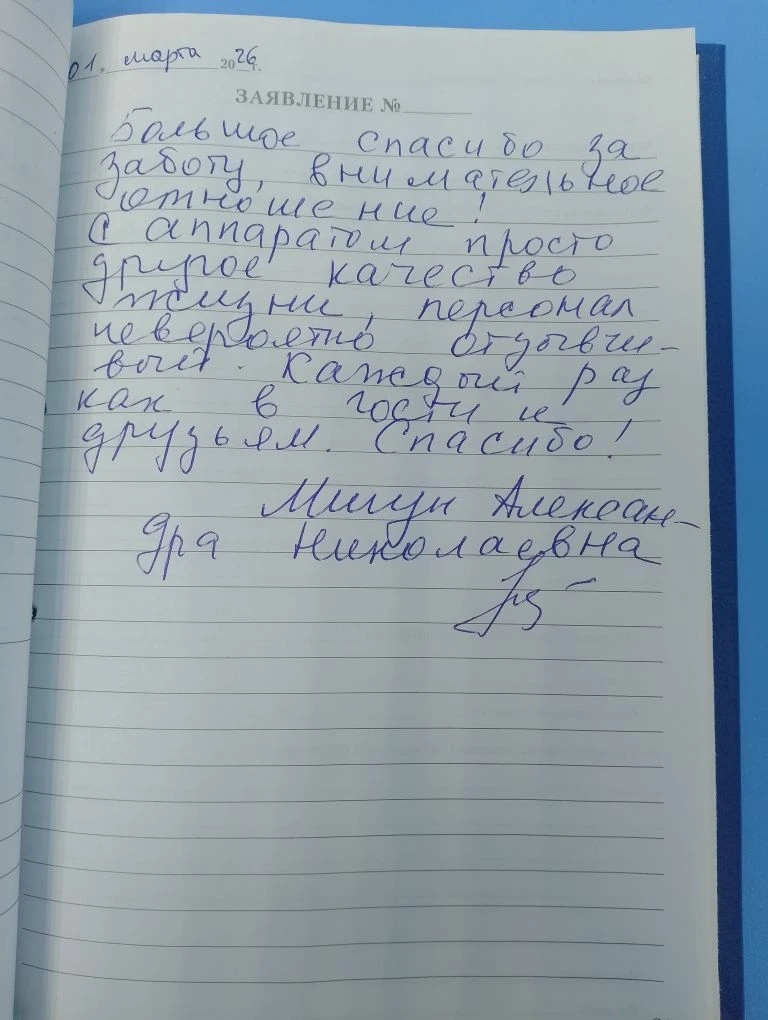 01. марта 2026г.
ЗАЯВЛЕНИЕ №
Большое спасибо за
заботу, внимательное
отношение!
С аппаратом просто
другое качество
жизни, персонал
невероятно отзывчи-
вый. Каждый раз
как в гости к
друзьям. Спасибо!
Алексан-
дра Николаевна